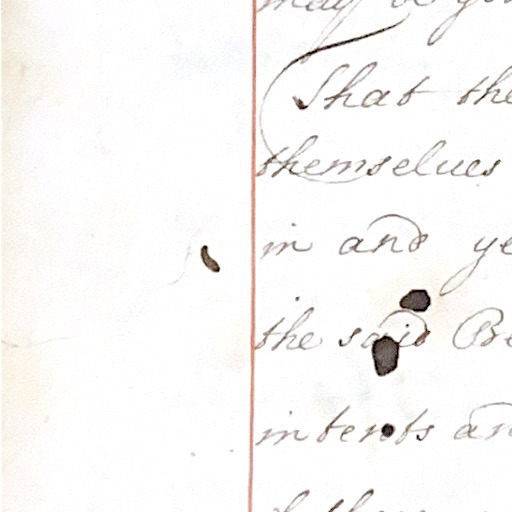 may be
That the
themselves
in and ye
the said Be
intents an